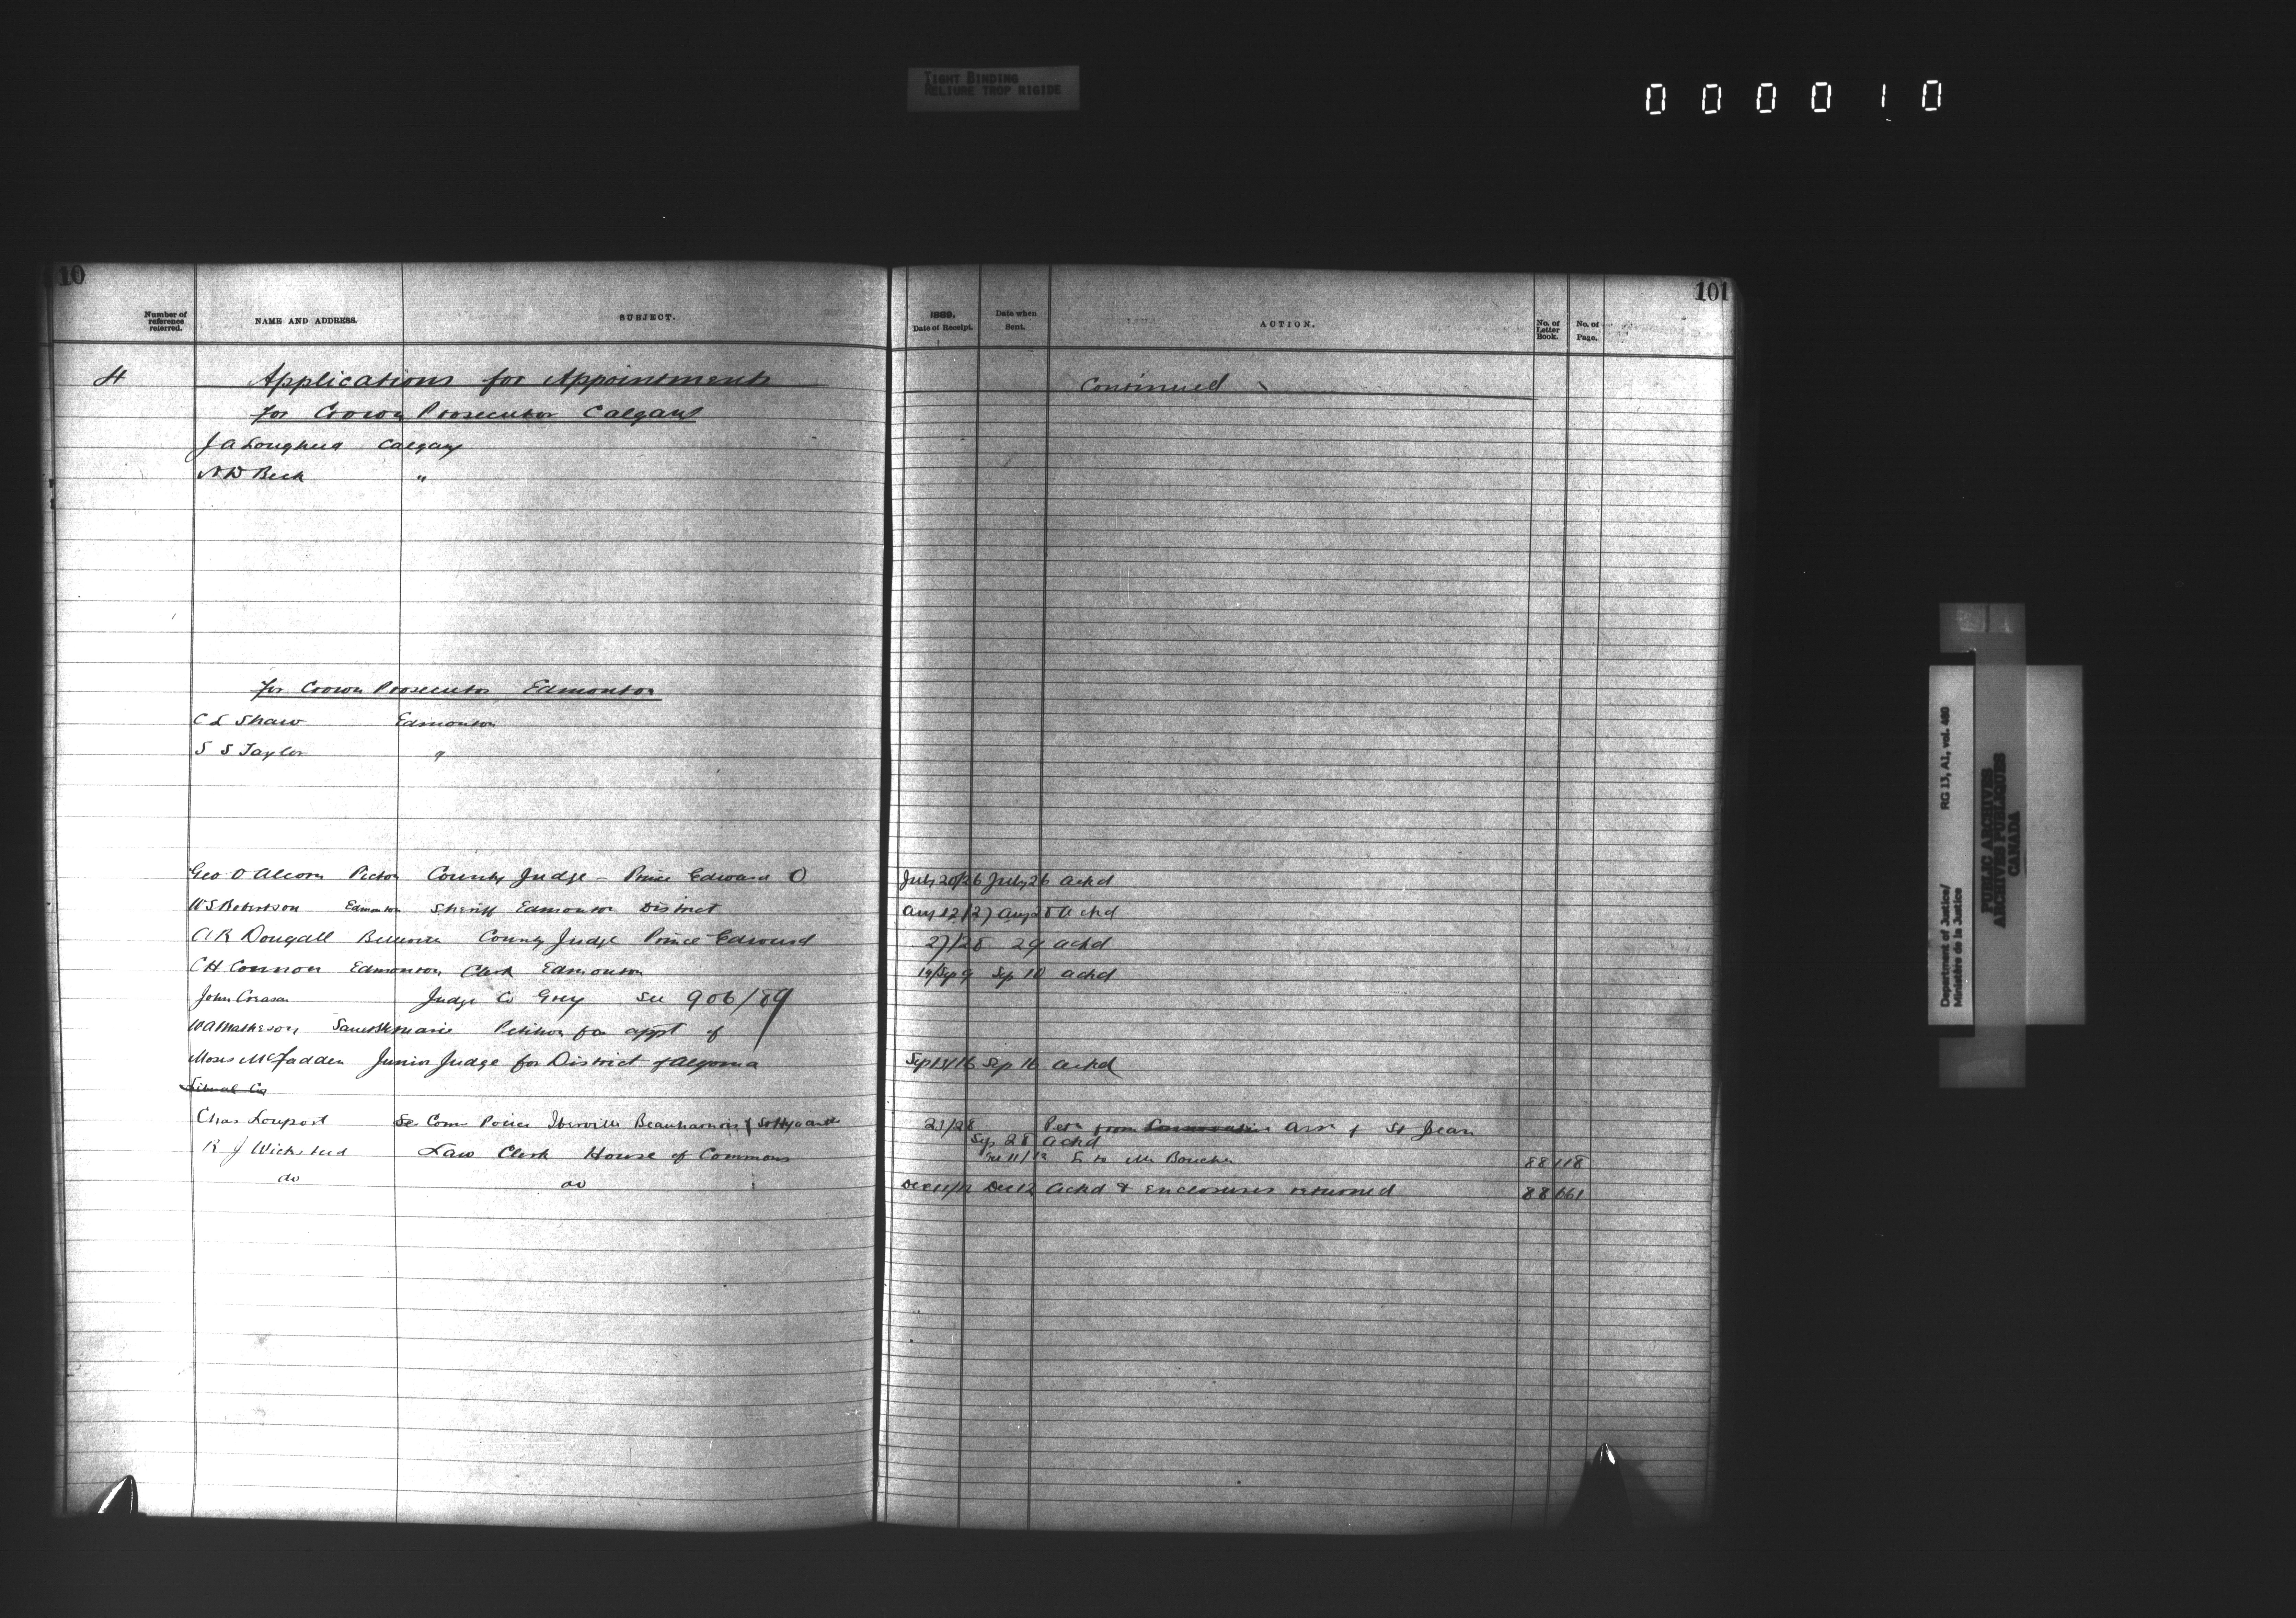 TIGHT BINDING
RELIURE TROP RIGIDE
000010
10
101
Number of reference referred.
NAME AND ADDRESS.
SUBJECT.
1889.
Date of Receipt.
Date when Sent.
ACTION.
No. of Letter Book.
No. of Page.
4 Applications for Appointments Continued
for Crown Prosecutor Calgary
J A Lougheed Calgary
N D Beck "
for Crown Prosecutor Edmonton
C L Shaw Edmonton
S S Taylor "
Geo O Alcorn Picton County Judge - Prince Edward O July 20/26 July 26 ackd
W S Robertson Edmonton Sheriff Edmonton District Aug 12/27 Aug 28 ackd
A R Dougall Belleville County Judge Prince Edward 27/28 29 ackd
C H Connon Edmonton Clerk Edmonton 19/Sep 9 Sep 10 ackd
John Creasor Judge Co Grey See 906/89
W A Matheson Petition for appt of
Moses McFadden Junior Judge for District of Algoma Sep 14/16 Sep 16 ackd
Chas Com Police Iberville Beauharnois & 21/28 Petn from Assn of St Jean
Sep 28 ackd
K J Wicksteed Law Clerk House of Commons 11/12 L to Mr Boucher 88 118
do do Dec 11/12 Dec 12 ackd & enclosures returned 88 661
Department of Justice/
Ministère de la Justice
RG 13, A1, vol. 480
PUBLIC ARCHIVES
ARCHIVES PUBLIQUES
CANADA